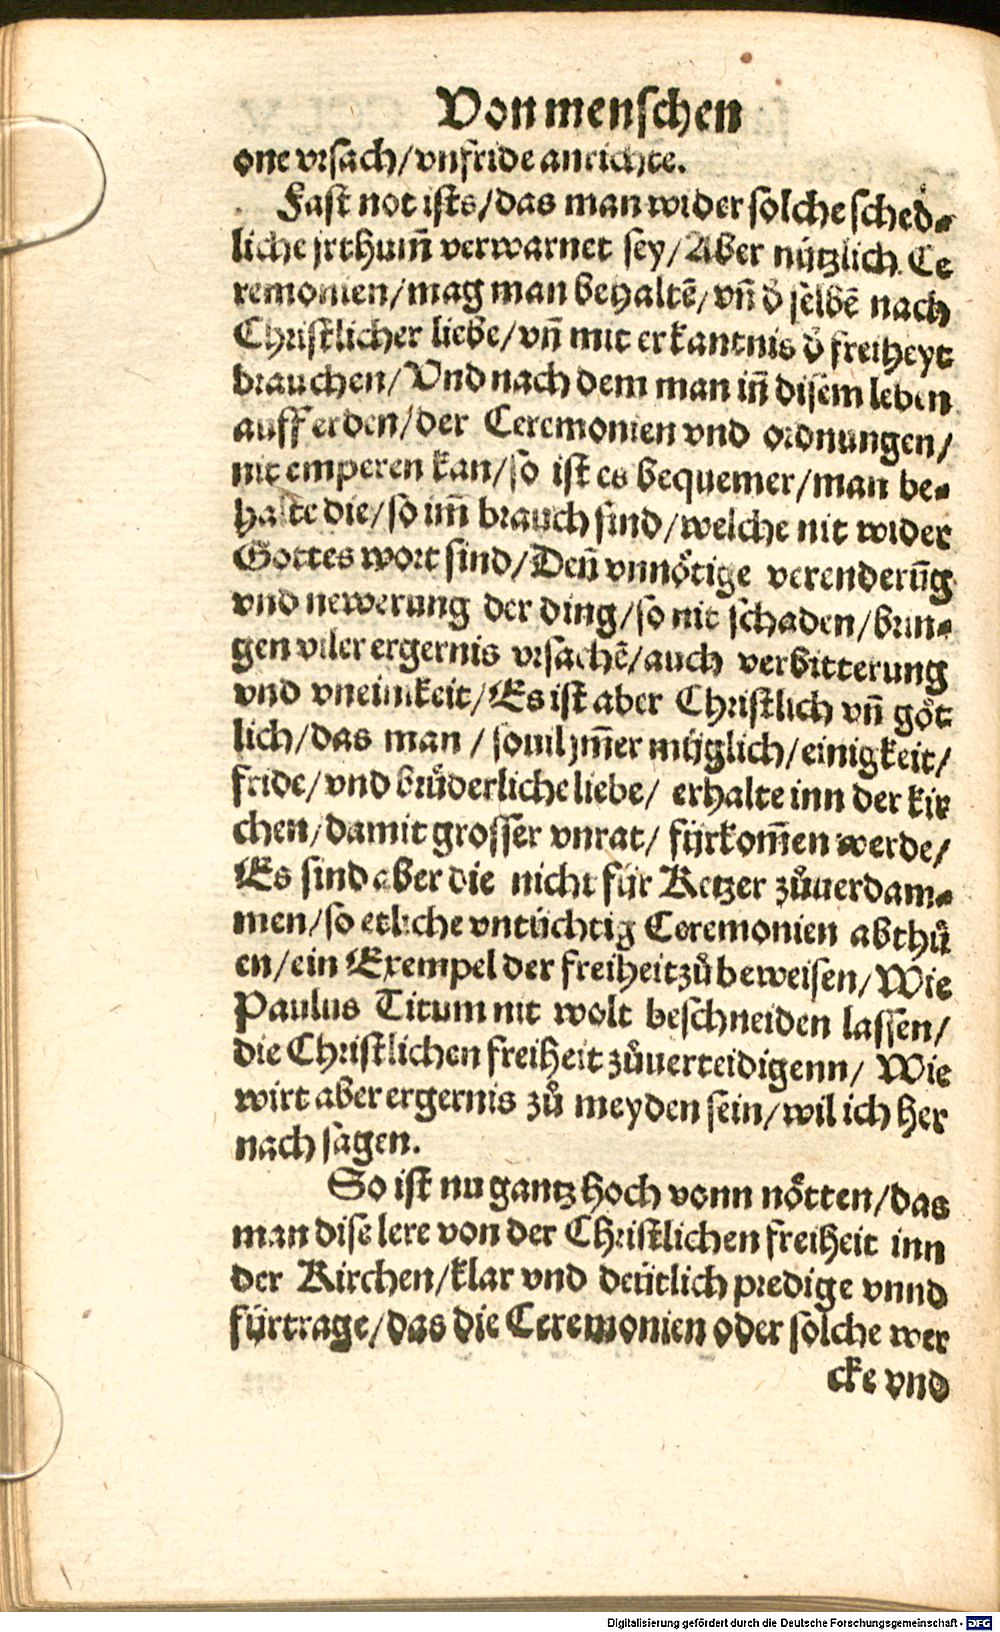 Von menschen
one vrsach/vnfride anrichte.
Fast not ists/das man wider solche sched-
liche jrthum̃ verwarnet sey/Aber nützlich Ce
remonien/mag man behaltẽ/vñ d̕ selbẽ nach
Christlicher liebe/vñ mit erkantnis d̕ freiheyt
brauchen/Vnd nach dem man iñ disem leben
auff erden/der Ceremonien vnd ordnungen/
nit emperen kan/so ist es bequemer/man be-
halte die/so im̃ brauch sind/welche nit wider
Gottes wort sind/Deñ vnnötige verenderũg
vnd newerung der ding/so nit schaden/brin-
gen viler ergernis vrsachẽ/auch verbitterung
vnd vneinikeit/Es ist aber Christlich vñ göt
lich/das man/souil jm̃er müglich/einigkeit/
fride/vnd brůderliche liebe/ erhalte inn der kir
chen/damit grosser vnrat/ fürkom̃en werde/
Es sind aber die nicht für Ketzer zůuerdam-
men/so etliche vntüchtig Ceremonien abthů
en/ein Exempel der freiheit zů beweisen/Wie
Paulus Titum nit wolt beschneiden lassen/
die Christlichen freiheit zůuerteidigenn/ Wie
wirt aber ergernis zů meyden sein/wil ich her
nach sagen.
So ist nu gantz hoch vonn nötten/das
man dise lere von der Christlichen freiheit inn
der Kirchen/klar vnd deütlich predige vnnd
fürtrage/das die Ceremonien oder solche wer
cke vnd
Digitalisierung gefördert durch die Deutsche Forschungsgemeinschaft - DFG